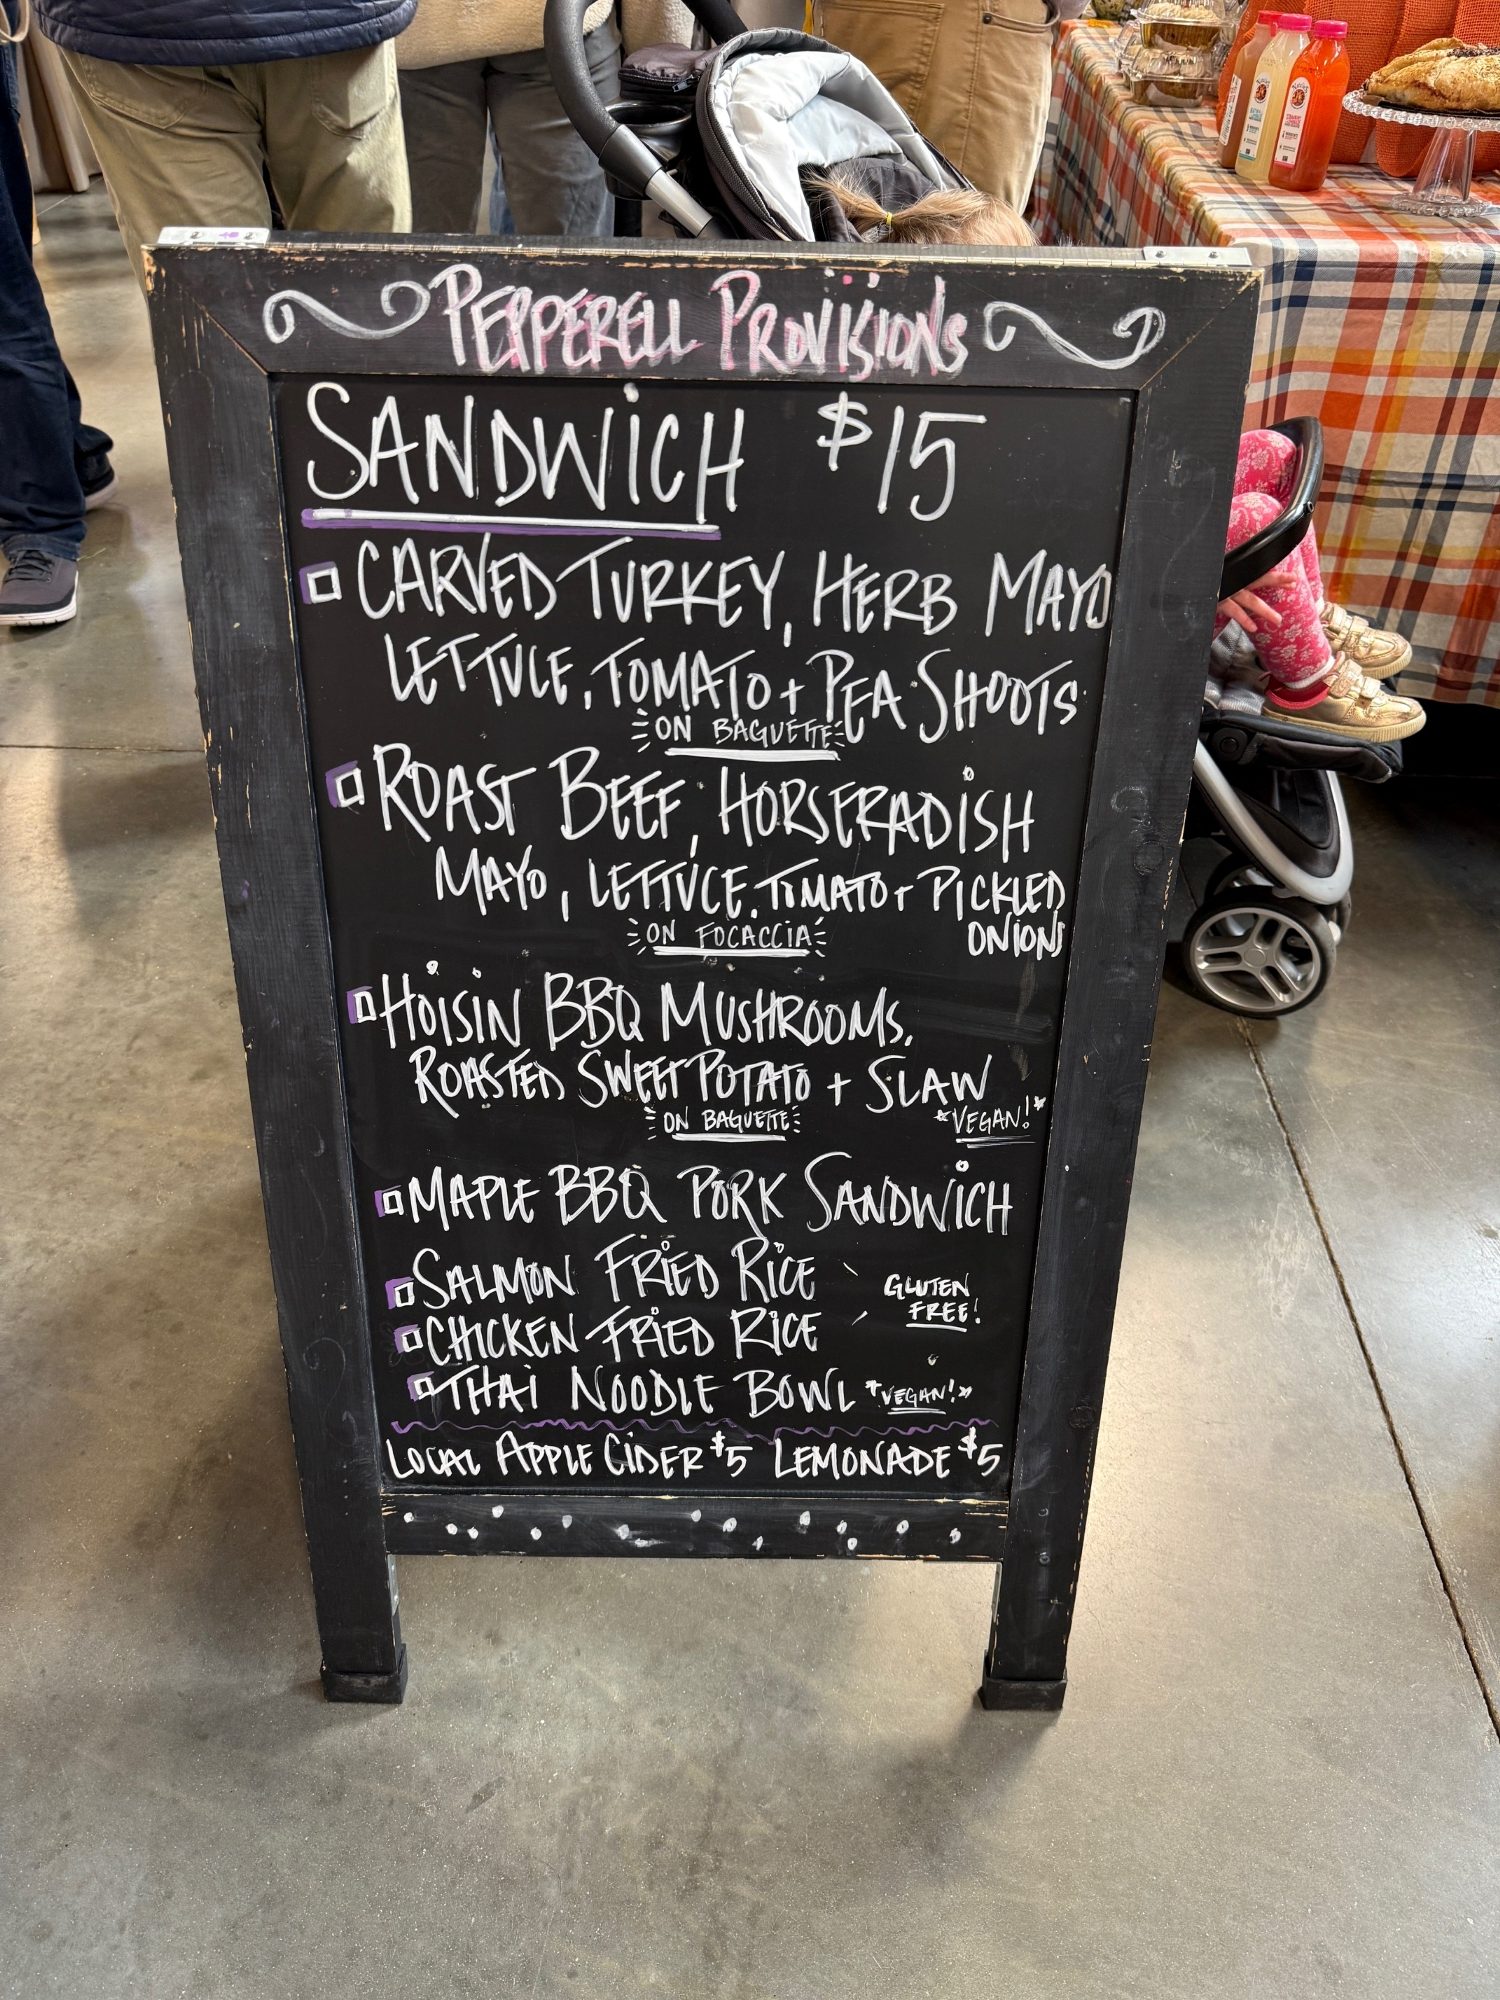 PEPPERELL PROVISIONS
SANDWICH $15
CARVED TURKEY, HERB MAYO
LETTUCE, TOMATO + PEA SHOOTS
ON BAGUETTE
ROAST BEEF, HORSERADISH
MAYO, LETTUCE, TOMATO + PICKLED
ONIONS
ON FOCACCIA
HOISIN BBQ MUSHROOMS,
ROASTED SWEET POTATO + SLAW
ON BAGUETTE
*VEGAN!*
MAPLE BBQ PORK SANDWICH
SALMON FRIED RICE
GLUTEN
FREE!
CHICKEN FRIED RICE
THAI NOODLE BOWL *VEGAN!*
LOCAL APPLE CIDER $5 LEMONADE $5